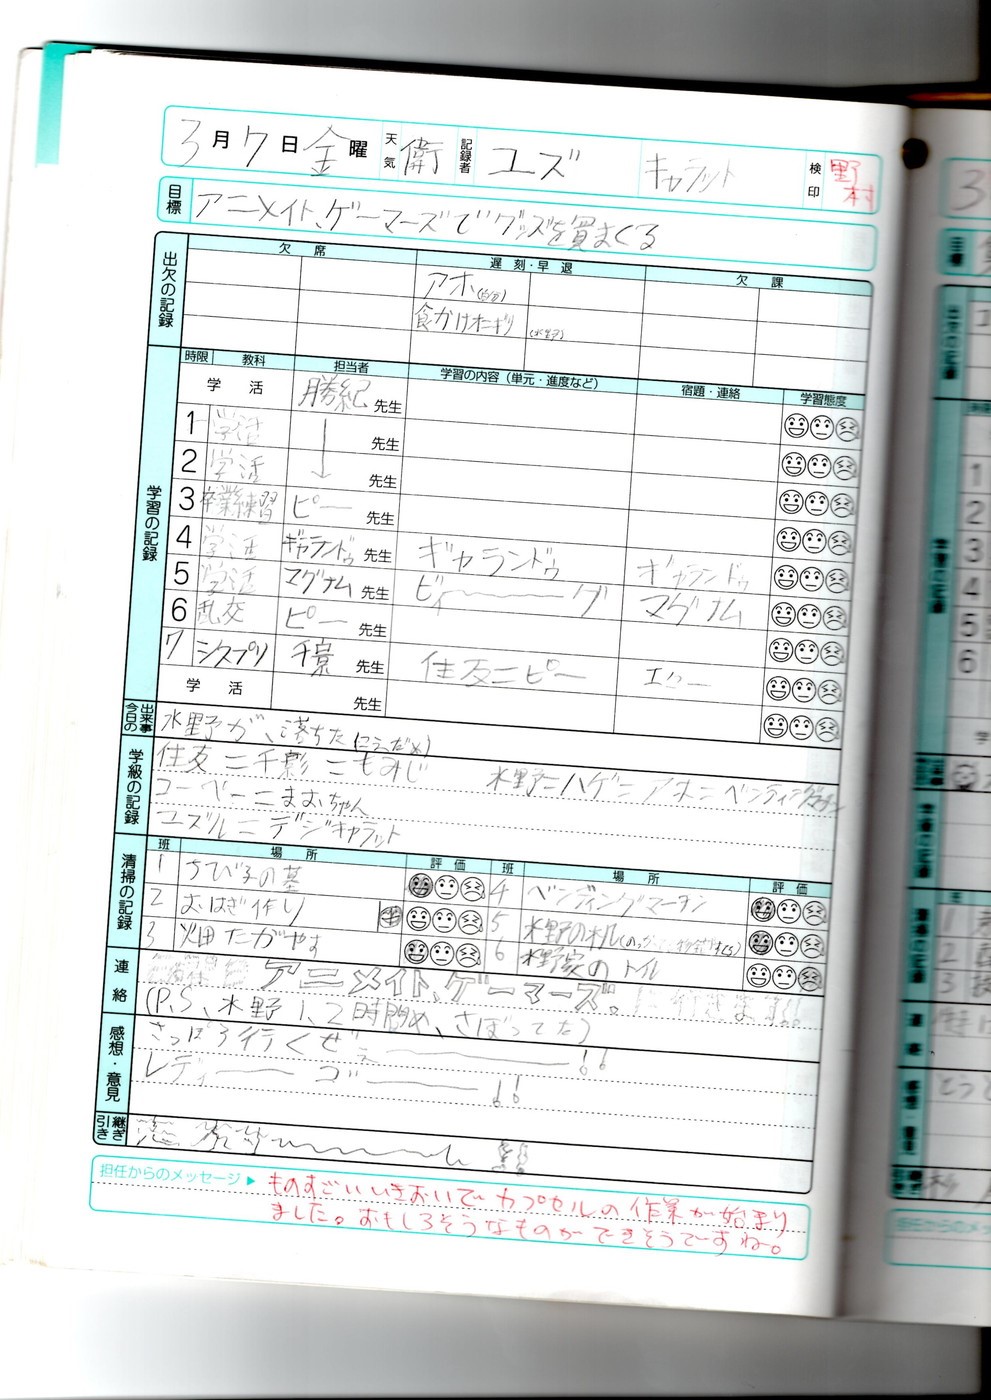 3月7日金曜 天気 衛 記録者 ユズ キャラット 検印 野村
目標 アニメイト、ゲーマーズでグッズを買まくる
出欠の記録 欠席 遅刻・早退 欠課
アホ(自分)
食かけオニギリ (水野)
学習の記録 時限 教科 担当者 学習の内容(単元・進度など) 宿題・連絡 学習態度
学活 勝紀先生
1 学活 ↓ 先生
2 学活 先生
3 卒業練習 ピー 先生
4 学活 ギャランドゥ 先生 ギャランドゥ ギャランドゥ
5 学活 マグナム 先生 ビィ〜〜グ マグナム
6 乱交 ピー 先生
7 シスプリ 千景 先生 住友ニピー エリー
学活 先生
今日の出来事 水野が、落ちた
学級の記録 住友=千影=もみじ
水野=ハゲ=アホ=ベンディング
コーベー=まおちゃん
ユズル=デジキャラット
清掃の記録 班 場所 評価 班 場所 評価
1 ちび子の墓 4 ベンディングマーチン
2 おはぎ作り 5 水野の机
3 畑たがやす 6 水野家のトイレ
連絡 アニメイト、ゲーマーズ。行きます!!
(P,S、水野1、2時間め、さぼってたう)
感想・意見 さっぽろ行くぜぇーーー!!
レディーー ゴーーー!!
引き継ぎ
担任からのメッセージ▶ ものすごいいきおいでカプセルの作業が始まり
ました。おもしろそうなものができそうですね。